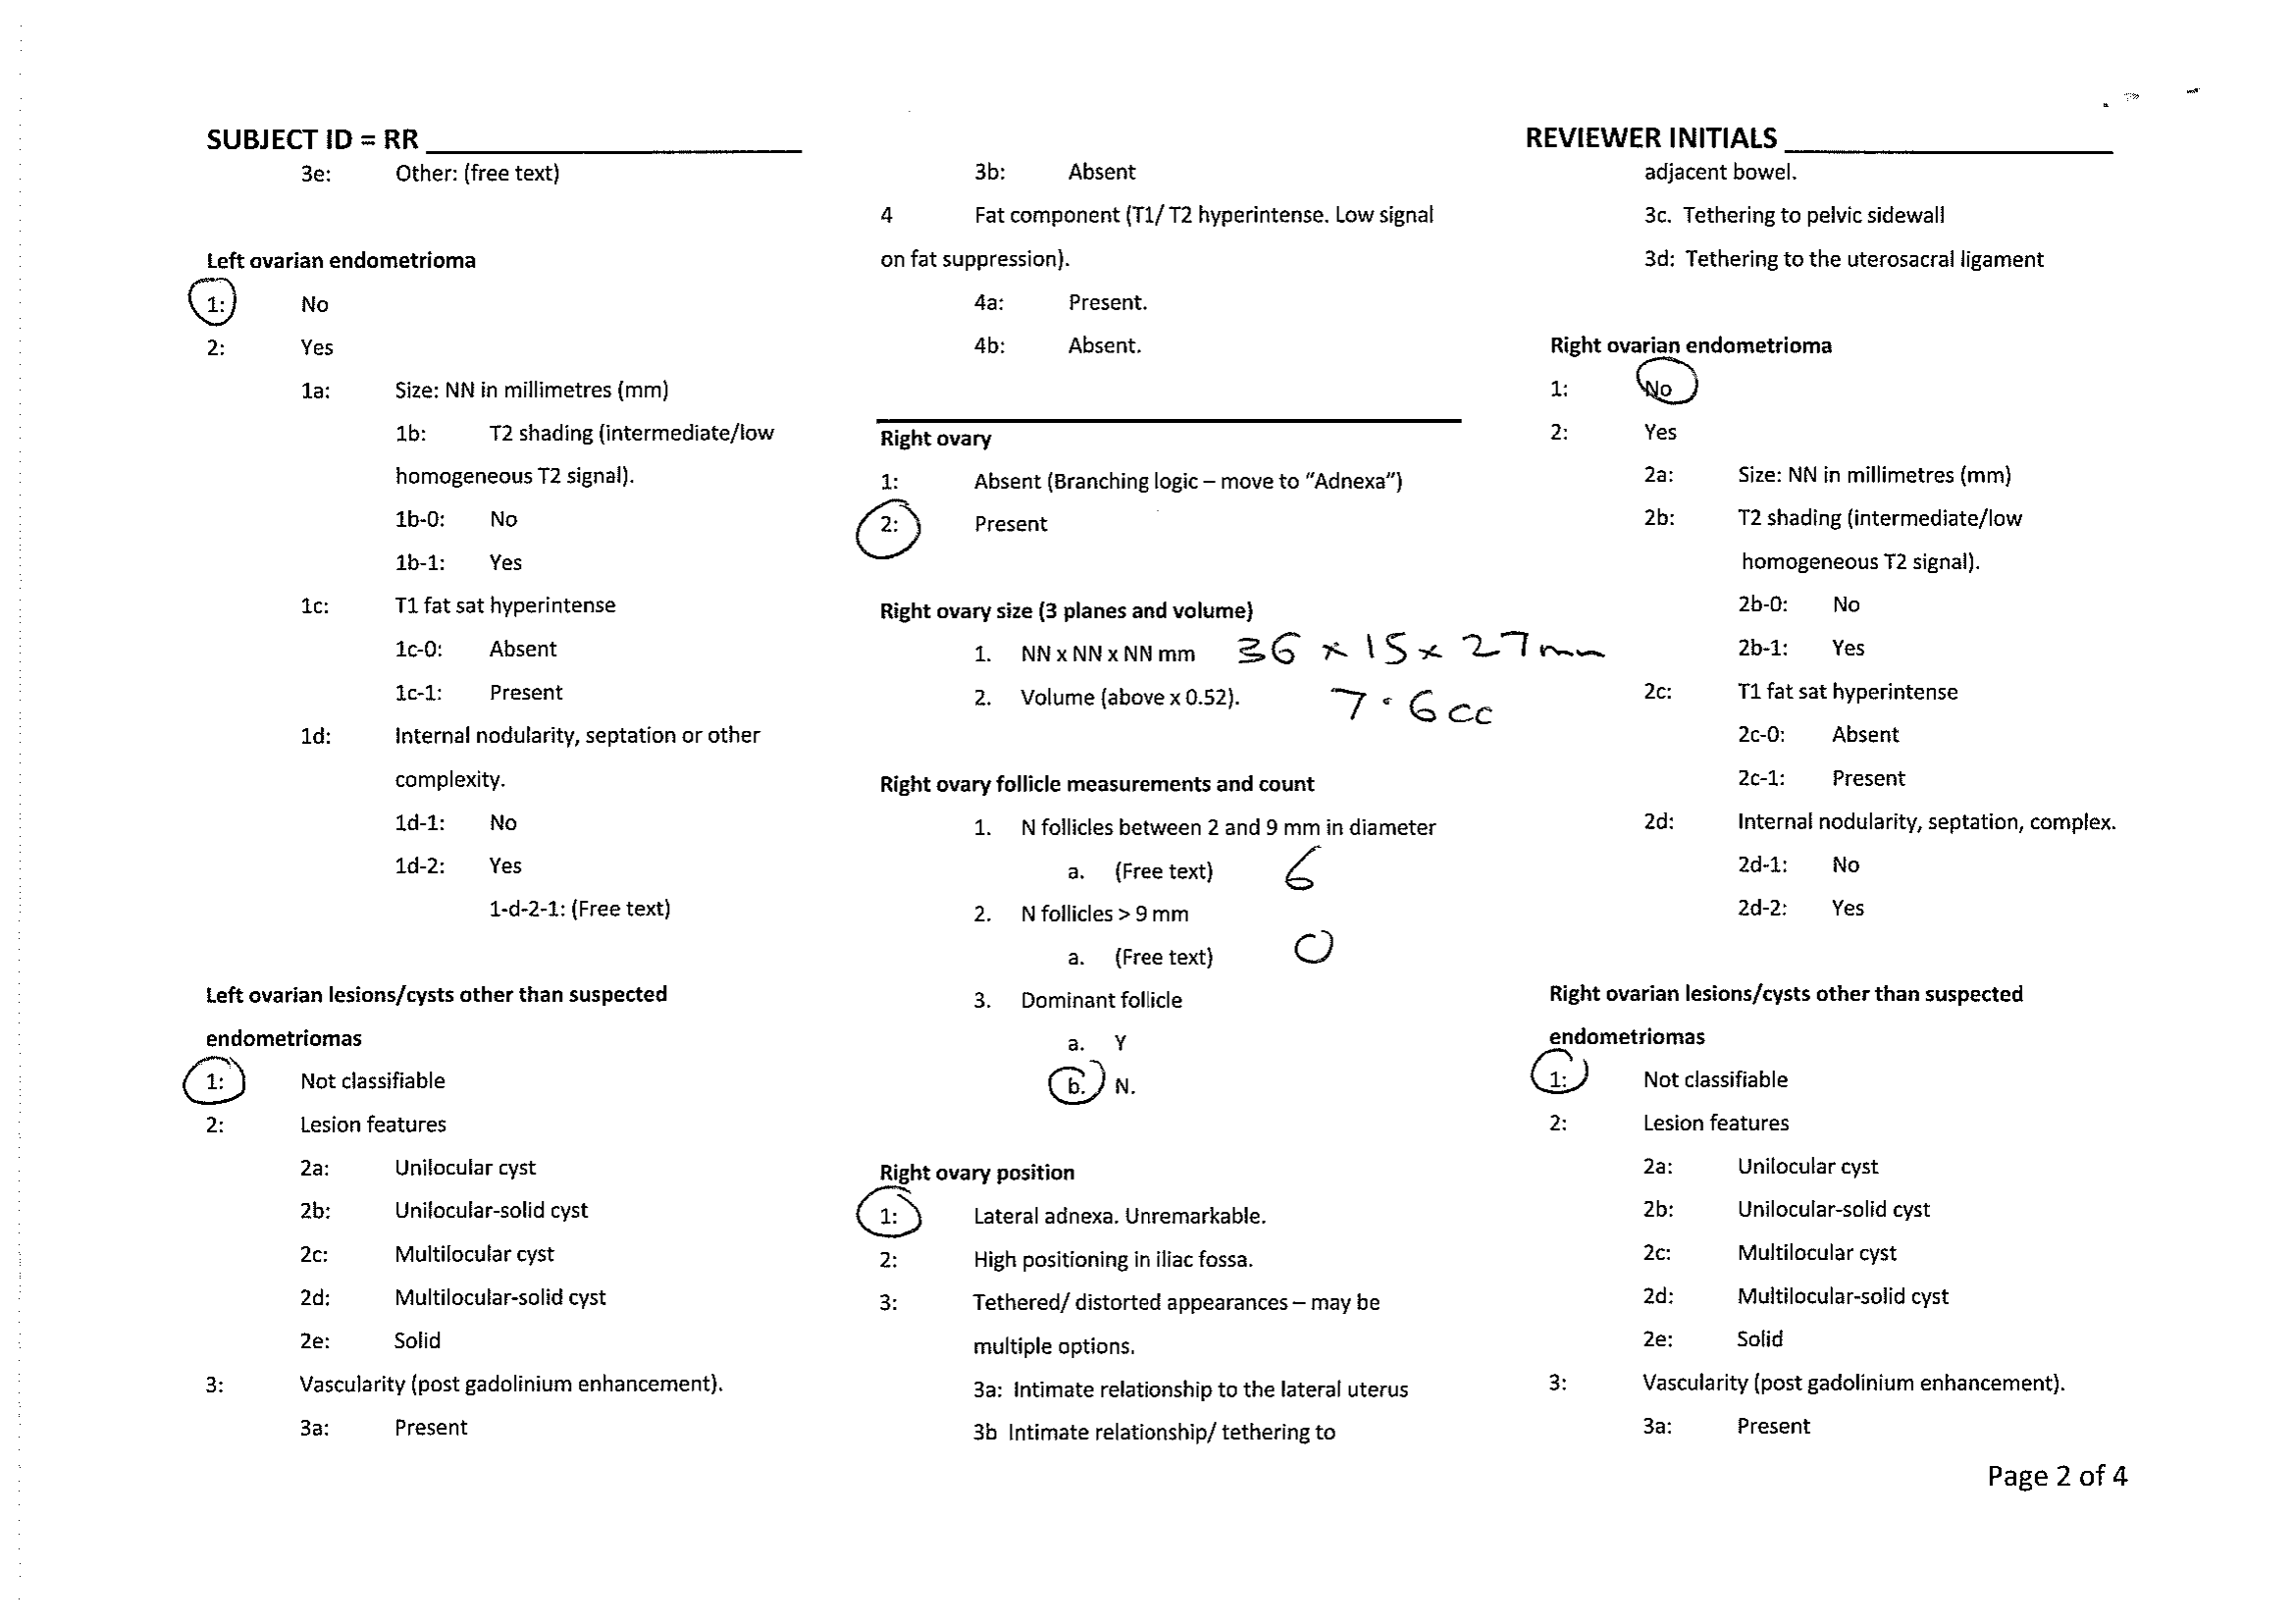 SUBJECT ID = RR
REVIEWER INITIALS
3e: Other: (free text)
Left ovarian endometrioma
1: No
2: Yes
1a: Size: NN in millimetres (mm)
1b: T2 shading (intermediate/low
homogeneous T2 signal).
1b-0: No
1b-1: Yes
1c: T1 fat sat hyperintense
1c-0: Absent
1c-1: Present
1d: Internal nodularity, septation or other
complexity.
1d-1: No
1d-2: Yes
1-d-2-1: (Free text)
Left ovarian lesions/cysts other than suspected
endometriomas
1: Not classifiable
2: Lesion features
2a: Unilocular cyst
2b: Unilocular-solid cyst
2c: Multilocular cyst
2d: Multilocular-solid cyst
2e: Solid
3: Vascularity (post gadolinium enhancement).
3a: Present
3b: Absent
4 Fat component (T1/ T2 hyperintense. Low signal
on fat suppression).
4a: Present.
4b: Absent.
Right ovary
1: Absent (Branching logic – move to “Adnexa”)
2: Present
Right ovary size (3 planes and volume)
1. NN x NN x NN mm 36 x 15 x 27mm
2. Volume (above x 0.52). 7.6cc
Right ovary follicle measurements and count
1. N follicles between 2 and 9 mm in diameter
a. (Free text) 6
2. N follicles > 9 mm
a. (Free text) 0
3. Dominant follicle
a. Y
b. N.
Right ovary position
1: Lateral adnexa. Unremarkable.
2: High positioning in iliac fossa.
3: Tethered/ distorted appearances – may be
multiple options.
3a: Intimate relationship to the lateral uterus
3b Intimate relationship/ tethering to
adjacent bowel.
3c. Tethering to pelvic sidewall
3d: Tethering to the uterosacral ligament
Right ovarian endometrioma
1: No
2: Yes
2a: Size: NN in millimetres (mm)
2b: T2 shading (intermediate/low
homogeneous T2 signal).
2b-0: No
2b-1: Yes
2c: T1 fat sat hyperintense
2c-0: Absent
2c-1: Present
2d: Internal nodularity, septation, complex.
2d-1: No
2d-2: Yes
Right ovarian lesions/cysts other than suspected
endometriomas
1: Not classifiable
2: Lesion features
2a: Unilocular cyst
2b: Unilocular-solid cyst
2c: Multilocular cyst
2d: Multilocular-solid cyst
2e: Solid
3: Vascularity (post gadolinium enhancement).
3a: Present
Page 2 of 4